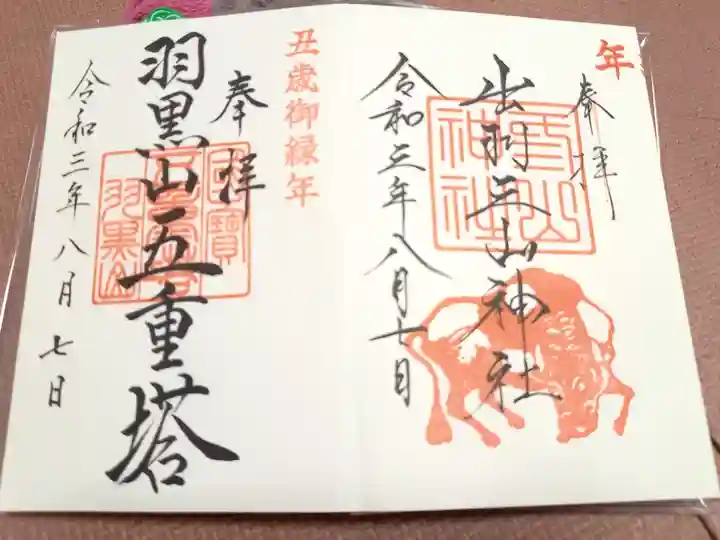 年
奉拝
出羽三山神社
令和三年八月七日
丑歳御縁年
奉拝
羽黒山五重塔
令和三年八月七日
羽黒山